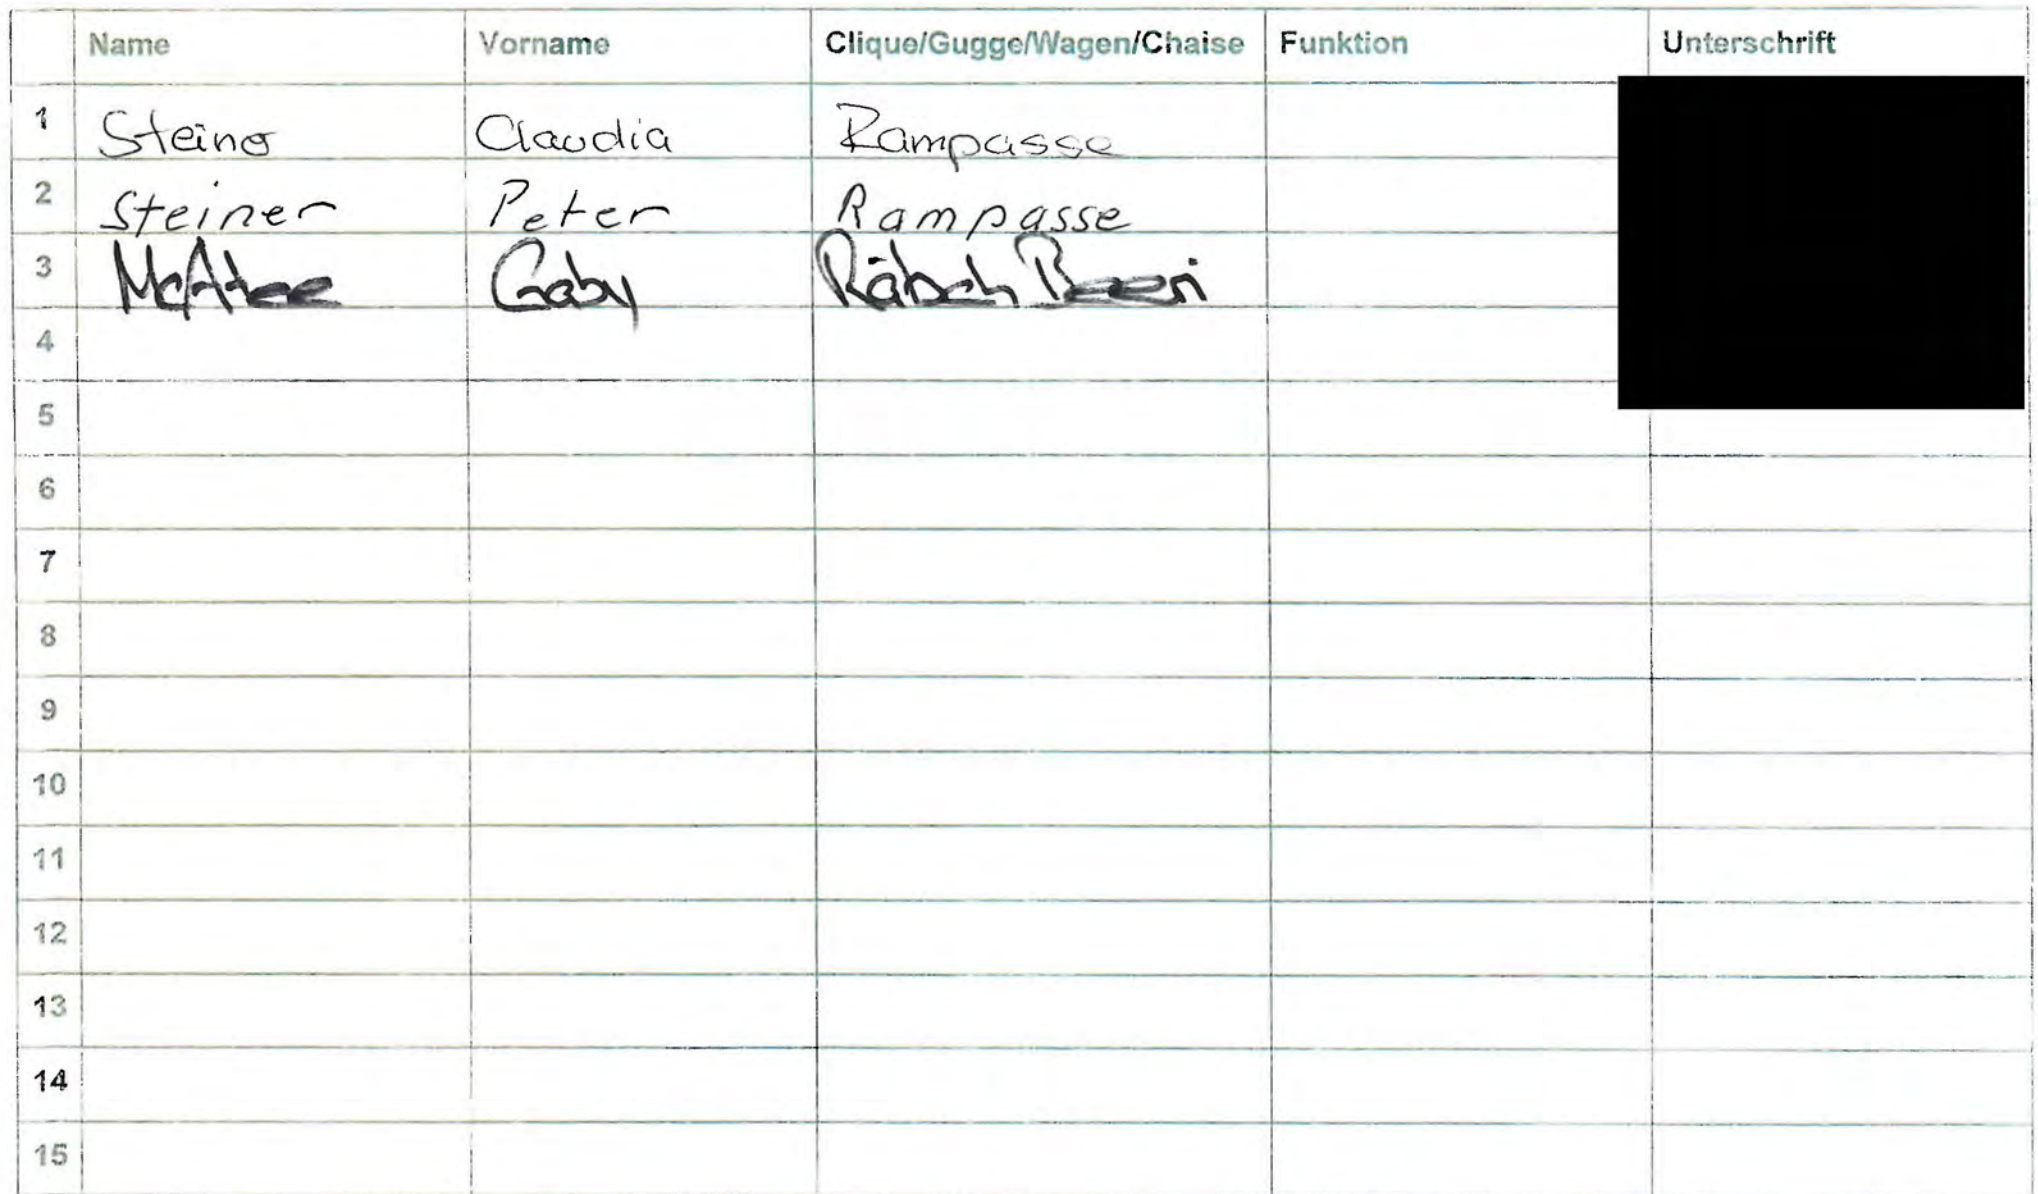 Name Vorname Clique/Gugge/Wagen/Chaise Funktion Unterschrift
1 Steiner Claudia Rampasse
2 Steiner Peter Rampasse
3 McAtee Gaby Räbach Beeri
4
5
6
7
8
9
10
11
12
13
14
15